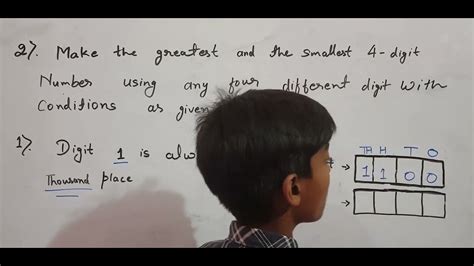 2). Make the greatest and the smallest 4-digit
Number using any four different digit with
Conditions as given
1). Digit 1 is
Thousand place
TH H T O
1 1 0 0